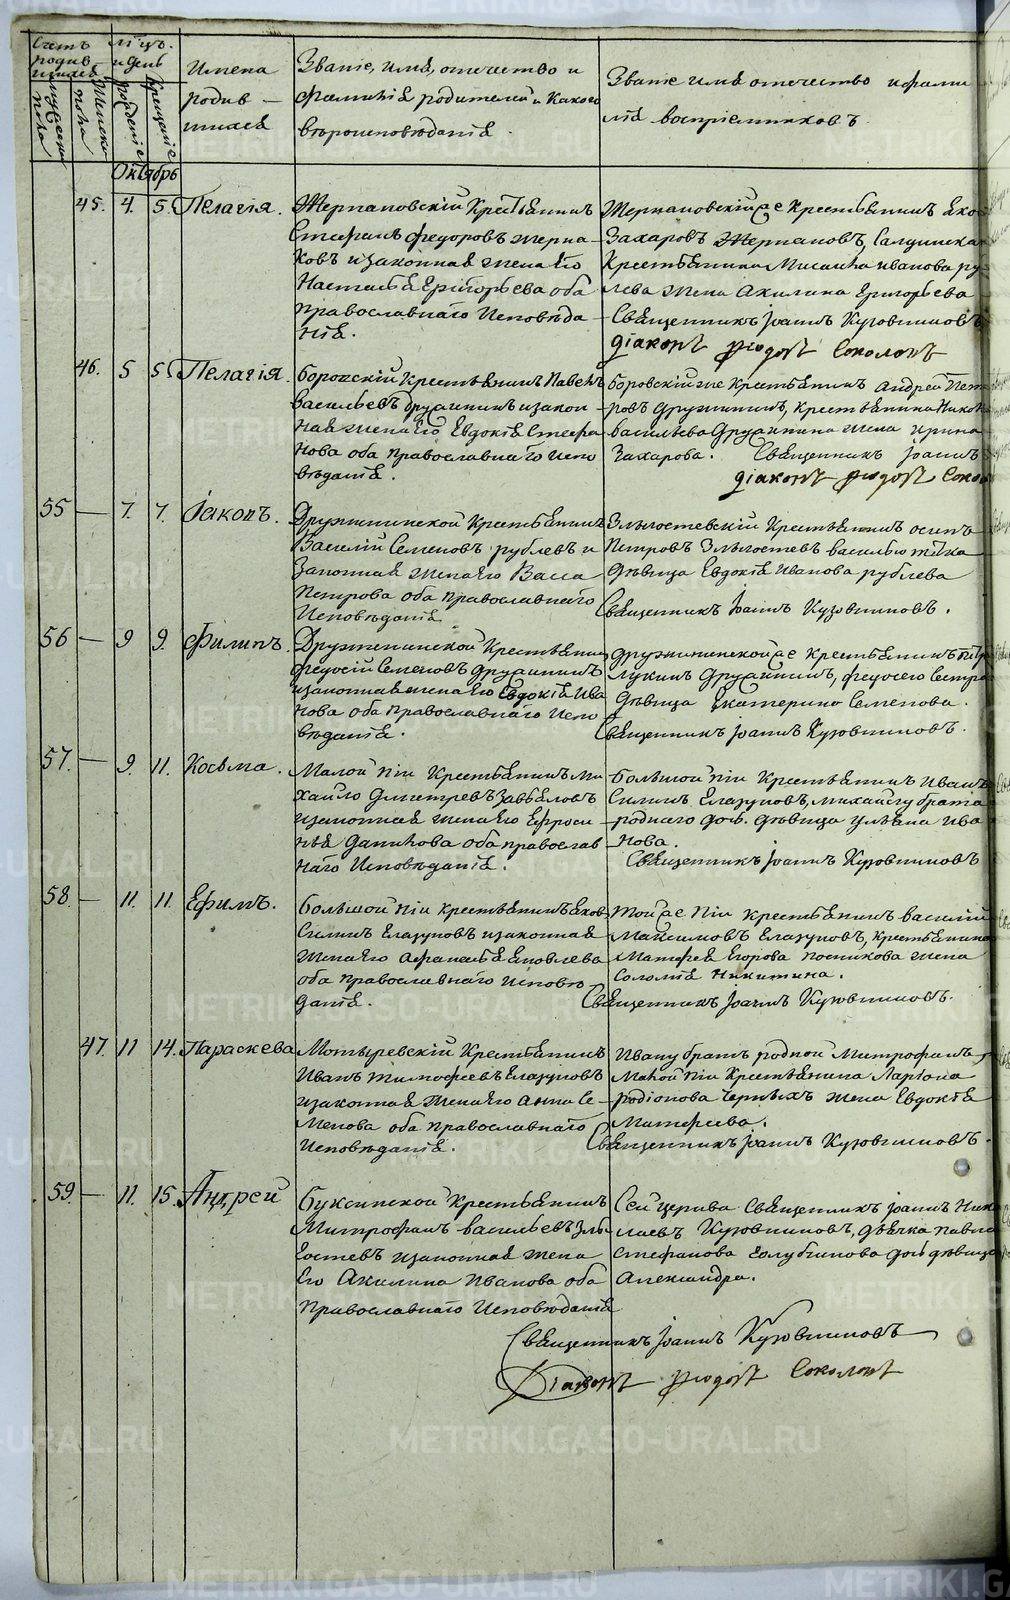 Счетъ родив шихся
Мужеска пола
Женска пола
Мцъ. и день
рожденіе
крещеніе
Имена родив — шихся
Званіе, имя, отечество и
фамилія родителей и какого
вѣроисповѣданія.
Званіе имя отечество и фами
лія воспріемниковъ
Октябрь
45. 4. 5. Пелагія.
Жернаковскій Крестьянинъ
Стефанъ Федоровъ Жерна —
ковъ и законная жена его
Настасья Григорьева оба
православнаго Исповѣда
нія.
Жернаковскій же крестьянинъ
Захаровъ Жернаковъ,
Крестьянина Иванова
жена Акилина Григорьева
Священникъ Іоаннъ Кузовниковъ
діаконъ Ѳіодоръ Соколовъ
46. 5 5 Пелагія.
Боровскій Крестьянинъ Павелъ
Васильевъ Дружининъ и закон
ная жена его Евдокія Стефа
нова оба православнаго испо
вѣданія.
Боровскій же, Крестьянинъ Андрей Пет
ровъ Дружининъ, крестьянина
Васильева Дружинина жена Ирина
Захарова. Священникъ Іоаннъ
діаконъ Ѳіодоръ Соколо
55 — 7. 7. Іаковъ.
Дружининской Крестьянинъ
Василій Семеновъ Рублевъ и
Законная жена его Васса
Петрова оба православнаго
Исповѣданія
Злыгостевскій Крестьянинъ Осипъ
Петровъ Злыгостевъ Василью тётка
дѣвица Евдокія Иванова Рублева
Священникъ Іоаннъ Кузовниковъ.
56 — 9 9. Филипъ.
Дружининской Крестьянинъ
Федосій Семеновъ Дружининъ
и законная жена его Евдокія Ива
нова оба православнаго Испо
вѣданія.
Дружининской же Крестьянинъ
Лукинъ Дружининъ, Федосею сестра
дѣвица Екатерина Семенова.
Священникъ Іоаннъ Кузовниковъ.
57. — 9. 11. Косьма.
Малой Піи Крестьянинъ Ми
хайло Дмитревъ
и законная жена его Ефроси
нья Данилова оба православ
наго Исповѣданія.
Большой Піи Крестьянинъ Иванъ
Силинъ Глазуновъ, Михайлу брата
роднаго дочь дѣвица Ульяна Ива
нова.
Священникъ Іоаннъ Кузовниковъ
58. — 11. 11. Ефимъ.
Большой Піи Крестьянинъ Яковъ
Силинъ Глазуновъ и законная
жена его Афанасья Яковлева
оба православнаго Исповѣ
данія.
Той же Піи Крестьянинъ Василій
Максимовъ Глазуновъ, Крестьянина
Матфея Егорова Посникова жена
Соломія Никитина.
Священникъ Іоаннъ Кузовниковъ.
47. 11 14. Параскева
Мотыревскій Крестьянинъ
Иванъ Тимофеевъ Глазуновъ
и законная жена его Анна Се —
менова оба православнаго
Исповѣданія.
Ивану братъ родной Митрофанъ,
Малой Піи Крестьянина Ларіона
Родіонова Черныхъ жена Евдокія
Матфеева.
Священникъ Іоаннъ Кузовниковъ.
59. — 11. 15. Андрей
Буксинской Крестьянинъ
Митрофанъ Васильевъ Злы
гостевъ и законная жена
Его Акилина Иванова оба
Православнаго Исповѣданія
Сей церкви Священникъ Іоаннъ Нико
лаевъ Кузовниковъ, дьячка Павла
Стефанова Голубчикова дочь дѣвица
Александра.
Священникъ Іоаннъ Кузовниковъ
Діаконъ Ѳіодоръ Соколовъ
METRIKI.GASO-URAL.RU